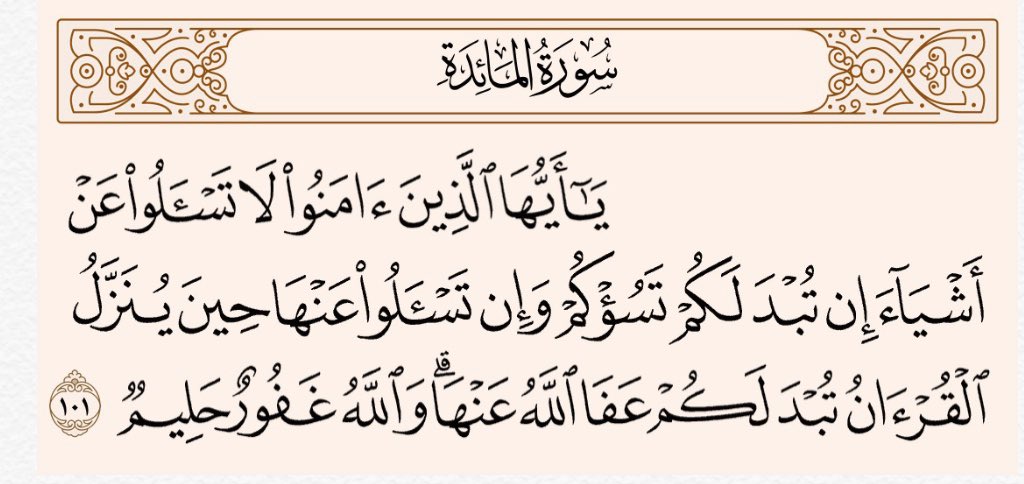 سُورَةُ المَائِدَةِ
يَٰٓأَيُّهَا ٱلَّذِينَ ءَامَنُوا۟ لَا تَسْـَٔلُوا۟ عَنْ
أَشْيَآءَ إِن تُبْدَ لَكُمْ تَسُؤْكُمْ وَإِن تَسْـَٔلُوا۟ عَنْهَا حِينَ يُنَزَّلُ
ٱلْقُرْءَانُ تُبْدَ لَكُمْ عَفَا ٱللَّهُ عَنْهَا ۗ وَٱللَّهُ غَفُورٌ حَلِيمٌ ١٠١